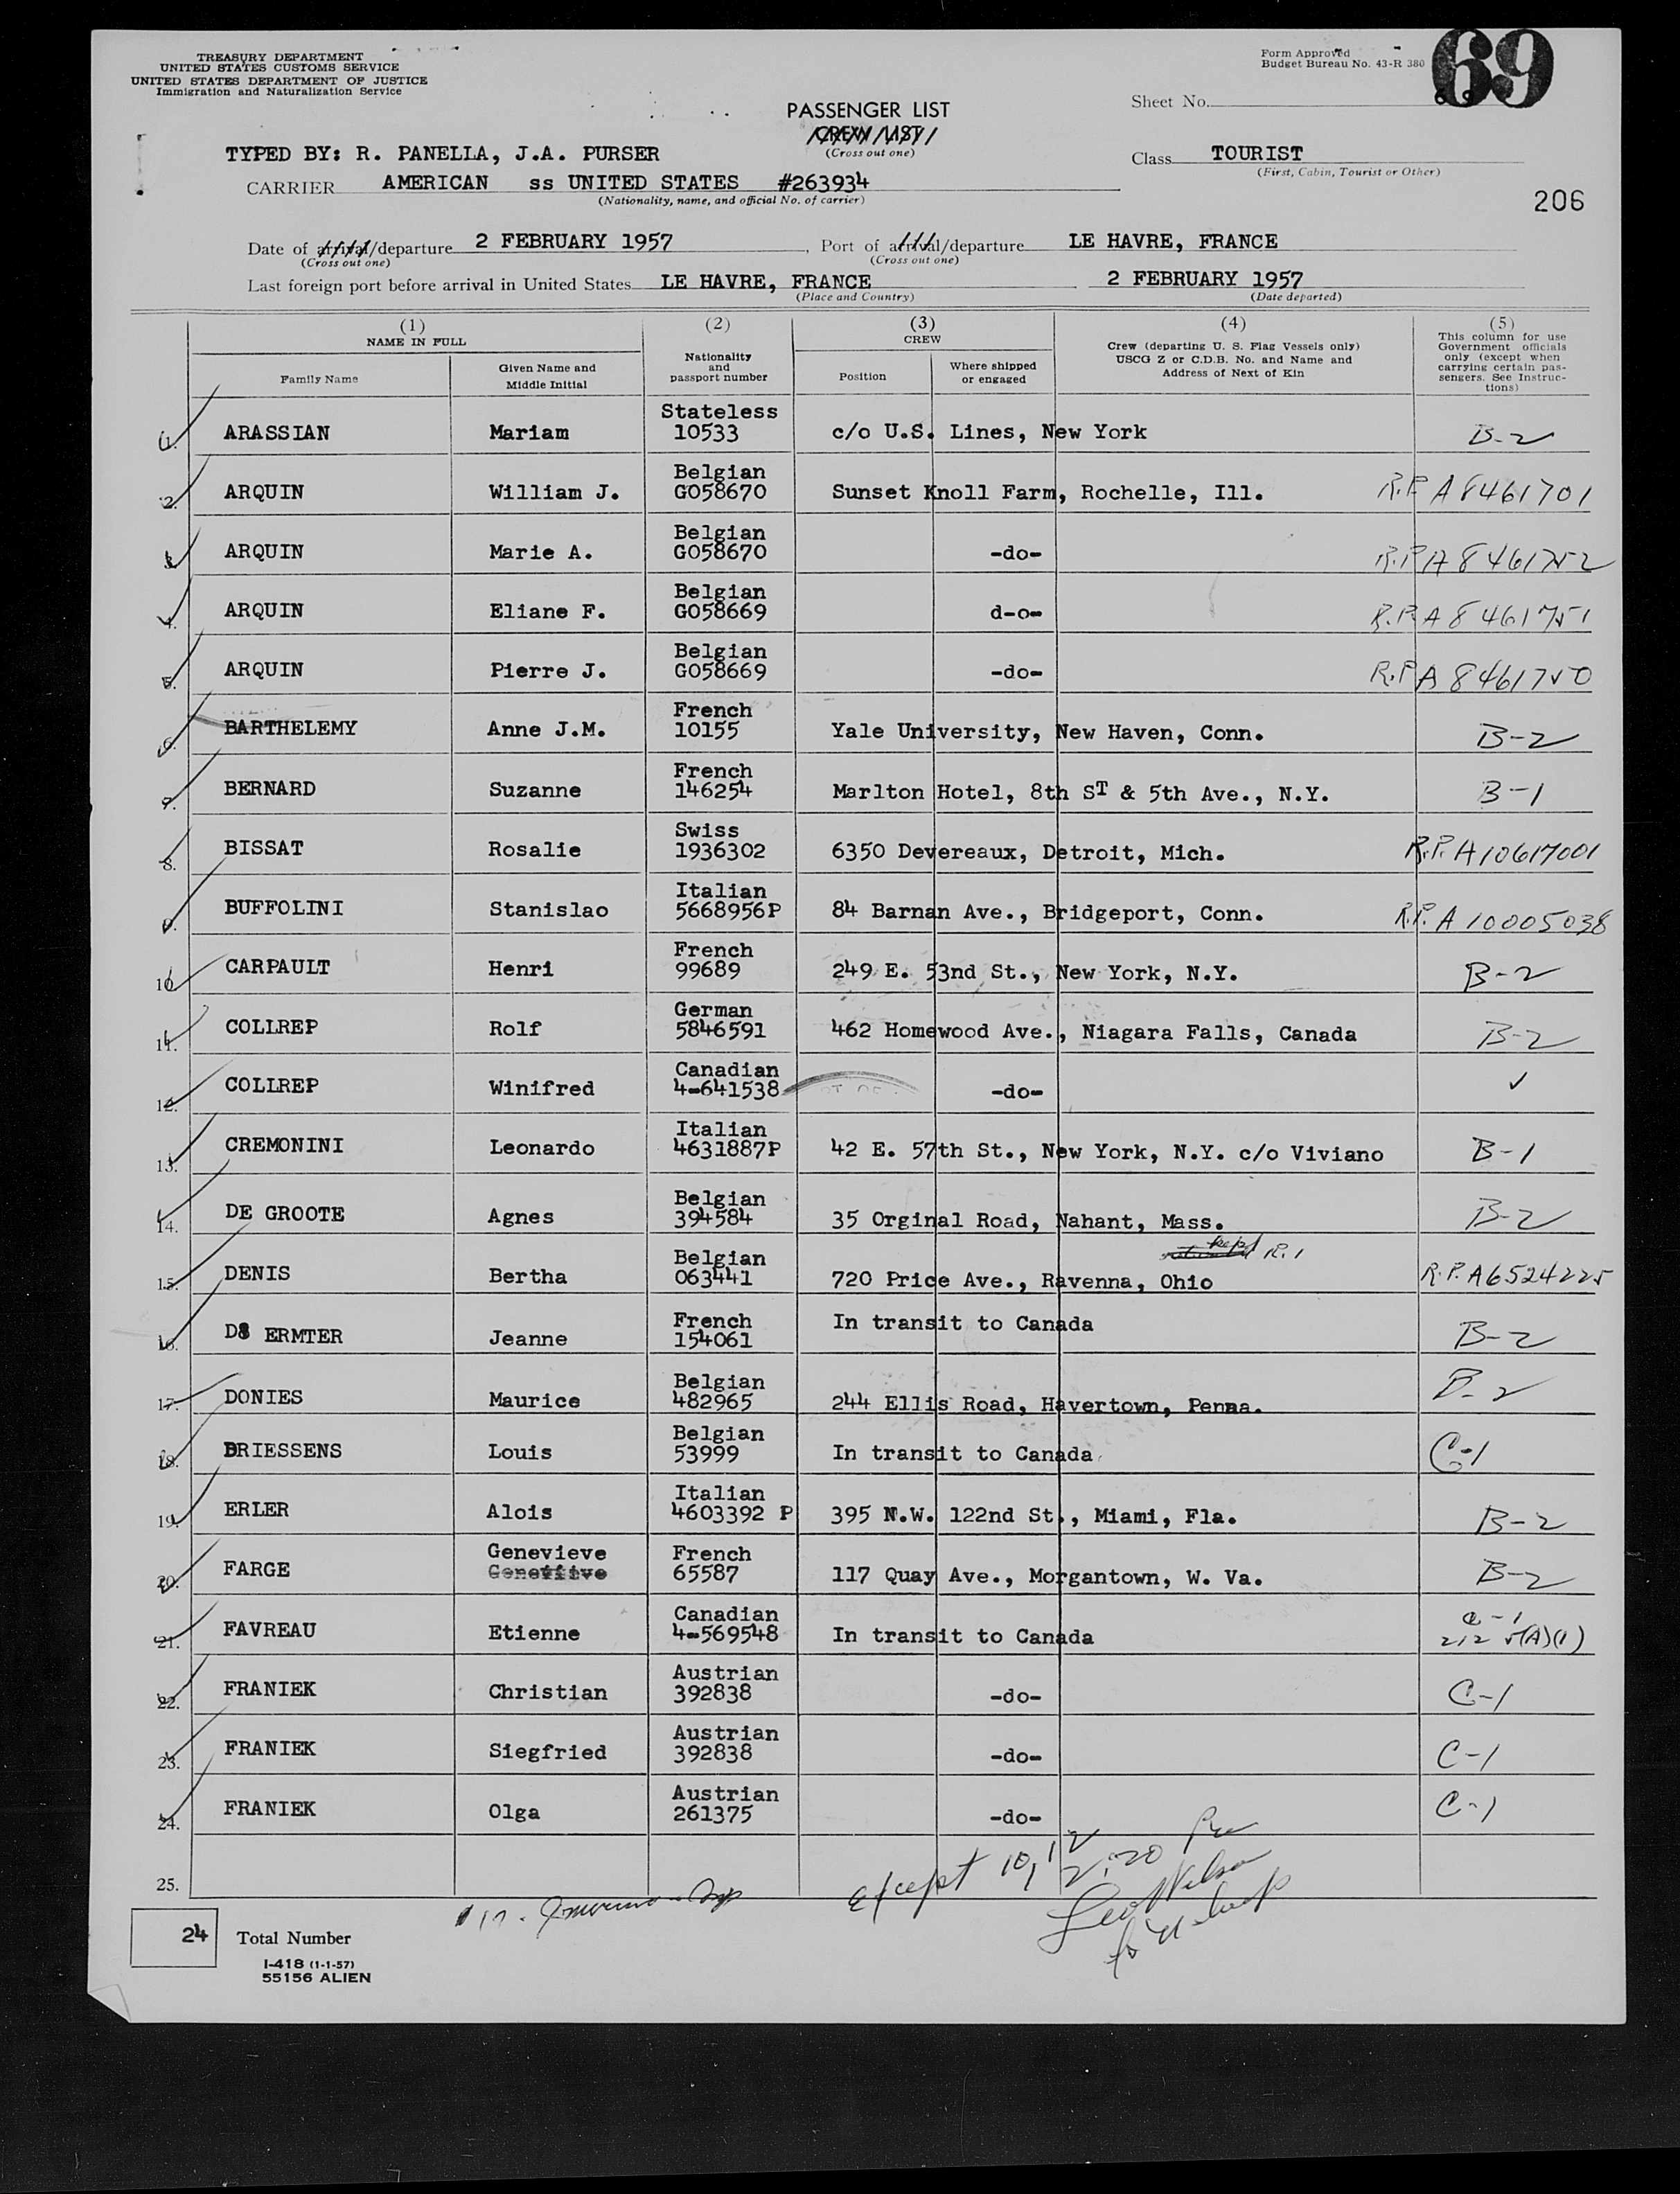 TREASURY DEPARTMENT
UNITED STATES CUSTOMS SERVICE
UNITED STATES DEPARTMENT OF JUSTICE
Immigration and Naturalization Service
Form Approved
Budget Bureau No. 43-R 380
69
Sheet No.
PASSENGER LIST
CREW LIST
(Cross out one)
TYPED BY: R. PANELLA, J.A. PURSER
Class TOURIST
(First, Cabin, Tourist or Other)
CARRIER AMERICAN ss UNITED STATES #263934
(Nationality, name, and official No. of carrier)
206
Date of arrival/departure 2 FEBRUARY 1957, Port of arrival/departure LE HAVRE, FRANCE
(Cross out one) (Cross out one)
Last foreign port before arrival in United States LE HAVRE, FRANCE 2 FEBRUARY 1957
(Place and Country) (Date departed)
(1) (2) (3) (4) (5)
NAME IN FULL
Family Name
Given Name and
Middle Initial
Nationality
and
passport number
CREW
Position
Where shipped
or engaged
Crew (departing U. S. Flag Vessels only)
USCG Z or C.D.B. No. and Name and
Address of Next of Kin
This column for use
Government officials
only (except when
carrying certain pas-
sengers. See Instruc-
tions)
Stateless
1. ARASSIAN Mariam 10533 c/o U.S. Lines, New York B-2
Belgian
2. ARQUIN William J. G058670 Sunset Knoll Farm, Rochelle, Ill. R.P. A8461701
Belgian
3. ARQUIN Marie A. G058670 -do- R.P. A8461752
Belgian
4. ARQUIN Eliane F. G058669 d-o- R.P. A8461751
Belgian
5. ARQUIN Pierre J. G058669 -do- R.P. A8461750
French
6. BARTHELEMY Anne J.M. 10155 Yale University, New Haven, Conn. B-2
French
7. BERNARD Suzanne 146254 Marlton Hotel, 8th ST & 5th Ave., N.Y. B-1
Swiss
8. BISSAT Rosalie 1936302 6350 Devereaux, Detroit, Mich. R.P. A10617001
Italian
9. BUFFOLINI Stanislao 5668956P 84 Barnan Ave., Bridgeport, Conn. R.P. A10005038
French
10. CARPAULT Henri 99689 249 E. 53nd St., New York, N.Y. B-2
German
11. COLLREP Rolf 5846591 462 Homewood Ave., Niagara Falls, Canada B-2
Canadian
12. COLLREP Winifred 4-641538 -do- ✓
Italian
13. CREMONINI Leonardo 4631887P 42 E. 57th St., New York, N.Y. c/o Viviano B-1
Belgian
14. DE GROOTE Agnes 394584 35 Orginal Road, Nahant, Mass. B-2
kept R.1
Belgian
15. DENIS Bertha 063441 720 Price Ave., Ravenna, Ohio R.P. A6524225
French
16. DE ERMTER Jeanne 154061 In transit to Canada B-2
Belgian
17. DONIES Maurice 482965 244 Ellis Road, Havertown, Penna. B-2
Belgian
18. DRIESSENS Louis 53999 In transit to Canada C-1
Italian
19. ERLER Alois 4603392 P 395 N.W. 122nd St., Miami, Fla. B-2
Genevieve French
20. FARGE 65587 117 Quay Ave., Morgantown, W. Va. B-2
Canadian C-1
21. FAVREAU Etienne 4-569548 In transit to Canada 212
Austrian
22. FRANIEK Christian 392838 -do- C-1
Austrian
23. FRANIEK Siegfried 392838 -do- C-1
Austrian
24. FRANIEK Olga 261375 -do- C-1
Except 10, 12
25.
24 Total Number
I-418 (1-1-57)
55156 ALIEN